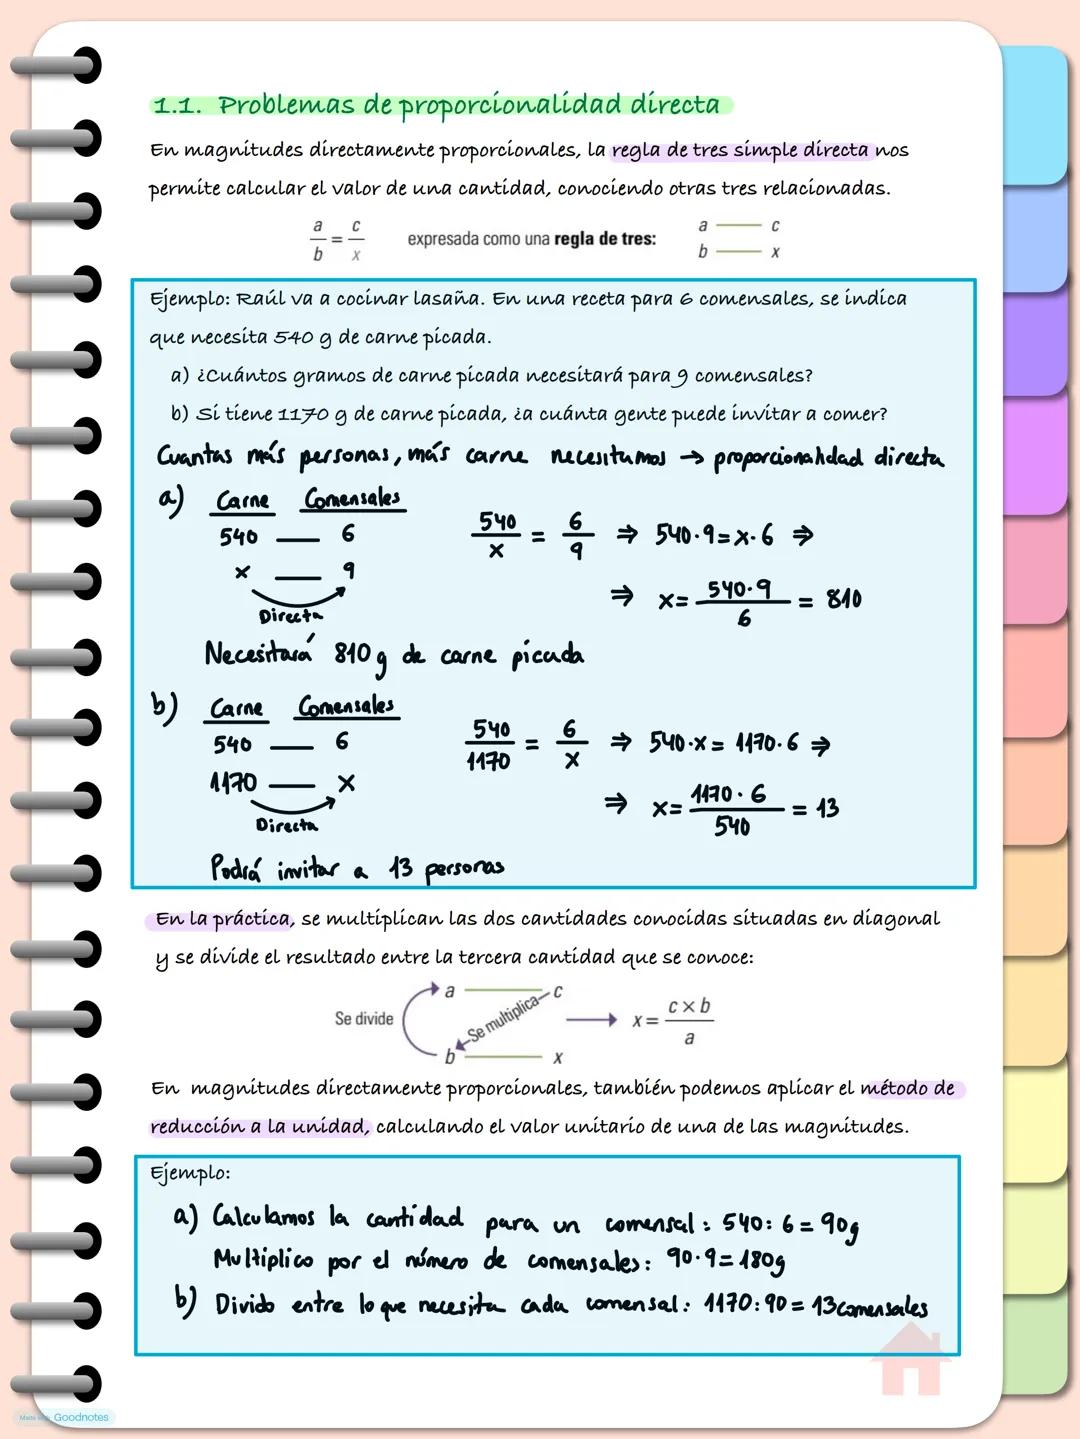 1.1. Problemas de proporcionalidad directa
En magnitudes directamente proporcionales, la regla de tres simple directa nos
permite calcular el valor de una cantidad, conociendo otras tres relacionadas.
a/b = c/x expresada como una regla de tres: a — c
b — x
Ejemplo: Raúl va a cocinar lasaña. En una receta para 6 comensales, se indica
que necesita 540 g de carne picada.
a) ¿Cuántos gramos de carne picada necesitará para 9 comensales?
b) Si tiene 1170 g de carne picada, ¿a cuánta gente puede invitar a comer?
Cuantas más personas, más carne necesitamos → proporcionalidad directa
a) Carne Comensales
540 — 6 540/x = 6/9 ⇒ 540·9=x·6 ⇒
x — 9
⇒ x= 540·9/6 = 810
Directa
Necesitará 810g de carne picada
b) Carne Comensales
540 — 6 540/1170 = 6/x ⇒ 540·x = 1170·6 ⇒
1170 — x
⇒ x= 1170·6/540 = 13
Directa
Podrá invitar a 13 personas
En la práctica, se multiplican las dos cantidades conocidas situadas en diagonal
y se divide el resultado entre la tercera cantidad que se conoce:
a — c
Se divide Se multiplica → x = c × b/a
b — x
En magnitudes directamente proporcionales, también podemos aplicar el método de
reducción a la unidad, calculando el valor unitario de una de las magnitudes.
Ejemplo:
a) Calculamos la cantidad para un comensal: 540:6=90g
Multiplico por el número de comensales: 90·9=180g
b) Divido entre lo que necesita cada comensal: 1170:90=13comensales
Made with Goodnotes